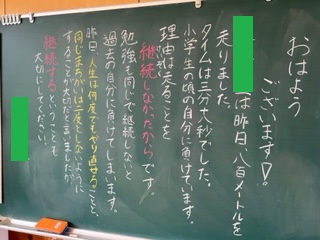 おはよう
ございます!
は昨日、八百メートルを
走りました。
タイムは三分十秒でした。
小学生の頃の自分に負けています。
理由は走ることを
継続しなかったからです。
勉強も同じで継続しないと
過去の自分に負けてしまいます。
昨日、人生は何度でもやり直せること、
同じまちがいは二度としないように
することが大切だと言いましたが、
継続するということも
大切にしてください。